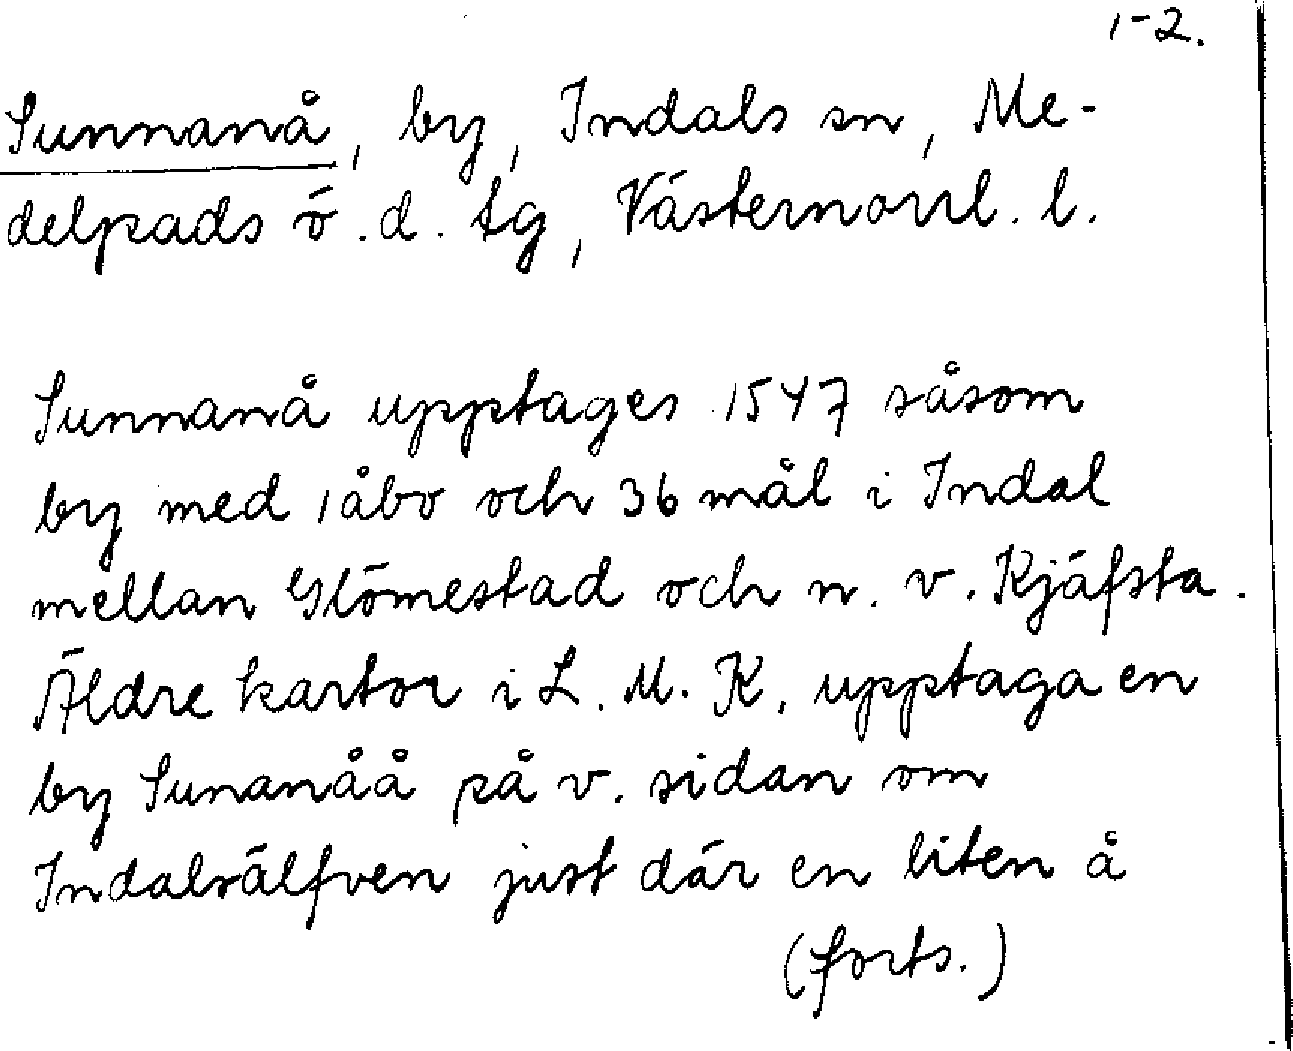 1-2.
Sunnanå, by, Indals sn, Me-
delpads ö. d. tg, Västernorrl. l.
Sunnanå upptages 1547 såsom
by med 1 åbo och 36 mål i Indal
mellan Glömestad och n. v. Kjäfsta.
Äldre kartor i L. M. K. upptaga en
by Sunanåå på v. sidan om
Indalsälfven just där en liten å
(forts.)